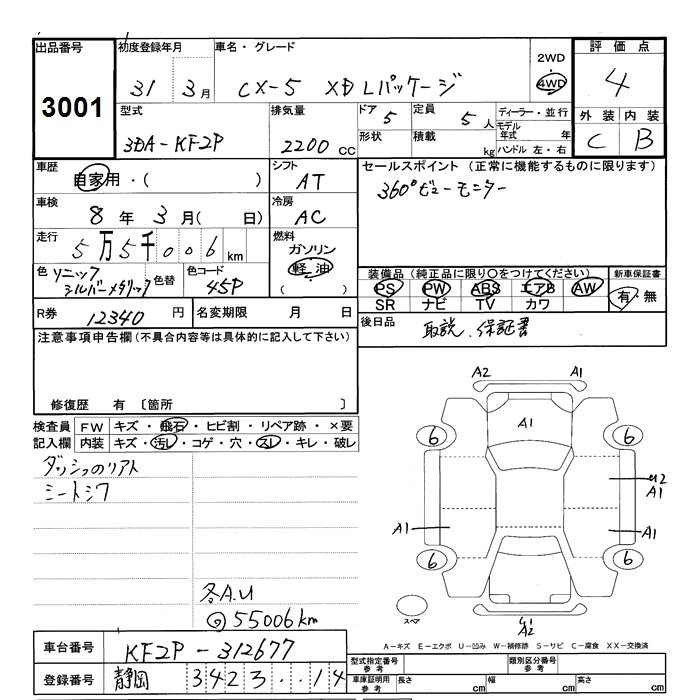 出品番号 初度登録年月 車名・グレード 2WD 評価点
3001 31 3月 CX-5 XD Lパッケージ 4WD 4
型式 排気量 ドア 5 定員 5人 ディーラー・並行 外装 内装
3DA-KF2P 2200 cc 形状 積載 kg モデル年式 年 C B
ハンドル 左・右
車歴 シフト セールスポイント (正常に機能するものに限ります)
自家用・( ) AT 360°ビューモニター
車検 冷房
8年 3月( 日) AC
走行 燃料
5万5千006km ガソリン
軽油
( )
色 ソニックシルバーメタリック 色替 色コード 45P
装備品 (純正品に限り○をつけてください) 新車保証書
PS PW ABS エアB AW 有・無
SR ナビ TV カワ
R券 12340円 名変期限 月 日 後日品 取説、保証書
注意事項申告欄 (不具合内容等は具体的に記入して下さい)
修復歴 有 〔箇所 〕
検査員 FW キズ・飛石・ヒビ割・リペア跡・×要
記入欄 内装 キズ・汚レ・コゲ・穴・スレ・キレ・破レ
シートシワ
A2 A1
A1
6 6
A1
A1 A1
6 6
A2
スペア
各A.U
55006km
A-キズ E-エクボ U-凹み W-補修跡 S-サビ C-腐食 XX-交換済
車台番号 KF2P-312677
型式指定番号 参考 類別区分番号 参考
登録番号 静岡 3423 ・・14
車庫証明用 参考 長さ cm 幅 cm 高さ cm